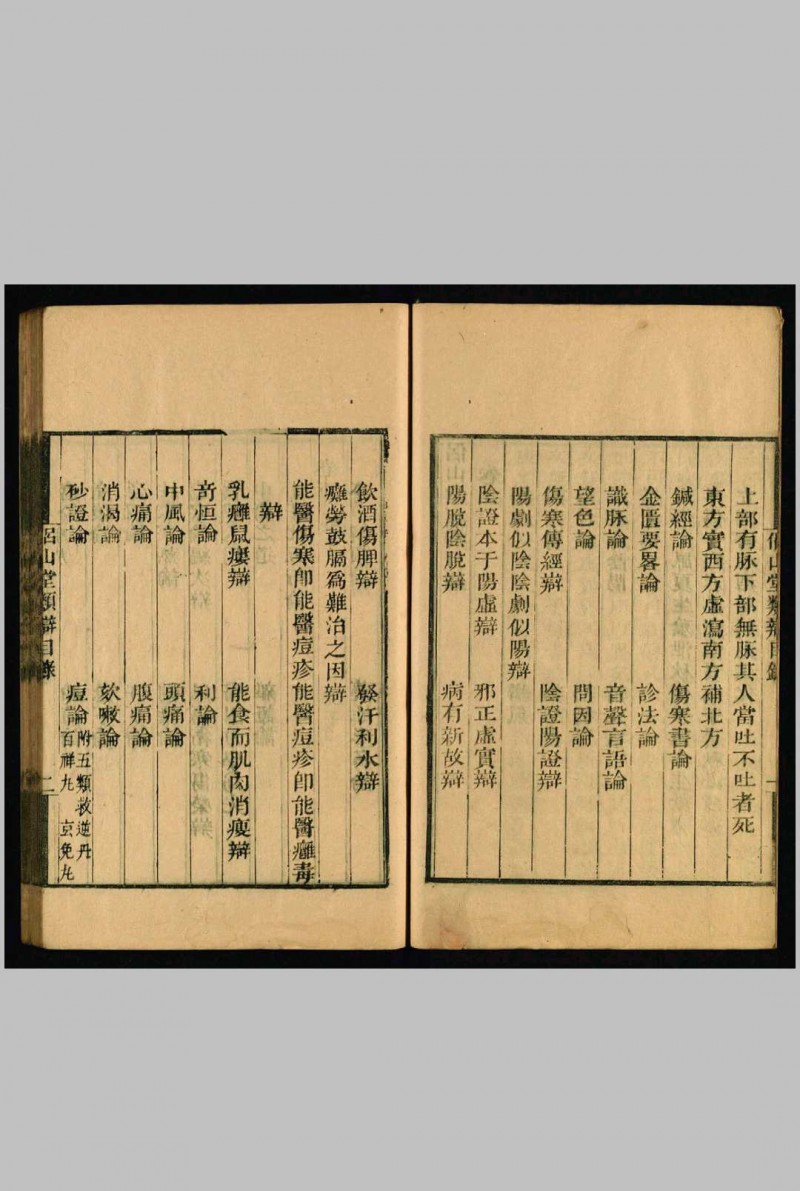 上部有脉下部無脉其人當吐不吐者死
東方實西方虛瀉南方補北方
鍼經論　傷寒書論
金匱要畧論　診法論
識脉論　音聲言語論
望色論　問因論
傷寒傳經辯　陰證陽證辯
陽劇似陰陰劇似陽辯
陰證本于陽虛辯　邪正虛實辯
陽脫陰脫辯　病有新故辯
飲酒傷脾辯　發汗利水辯
癰勞鼓膈爲難治之因辯
能醫傷寒卽能醫痘疹能醫痘疹卽能醫癰毒
辯
乳癰鼠瘻辯　能食而肌肉消瘦辯
奇恒論　利論
中風論　頭痛論
心痛論　腹痛論
消渴論　欬嗽論
痧證論　痘論附五類救逆丹
百祥丸　京兔丸
侶山堂類辯目錄　二